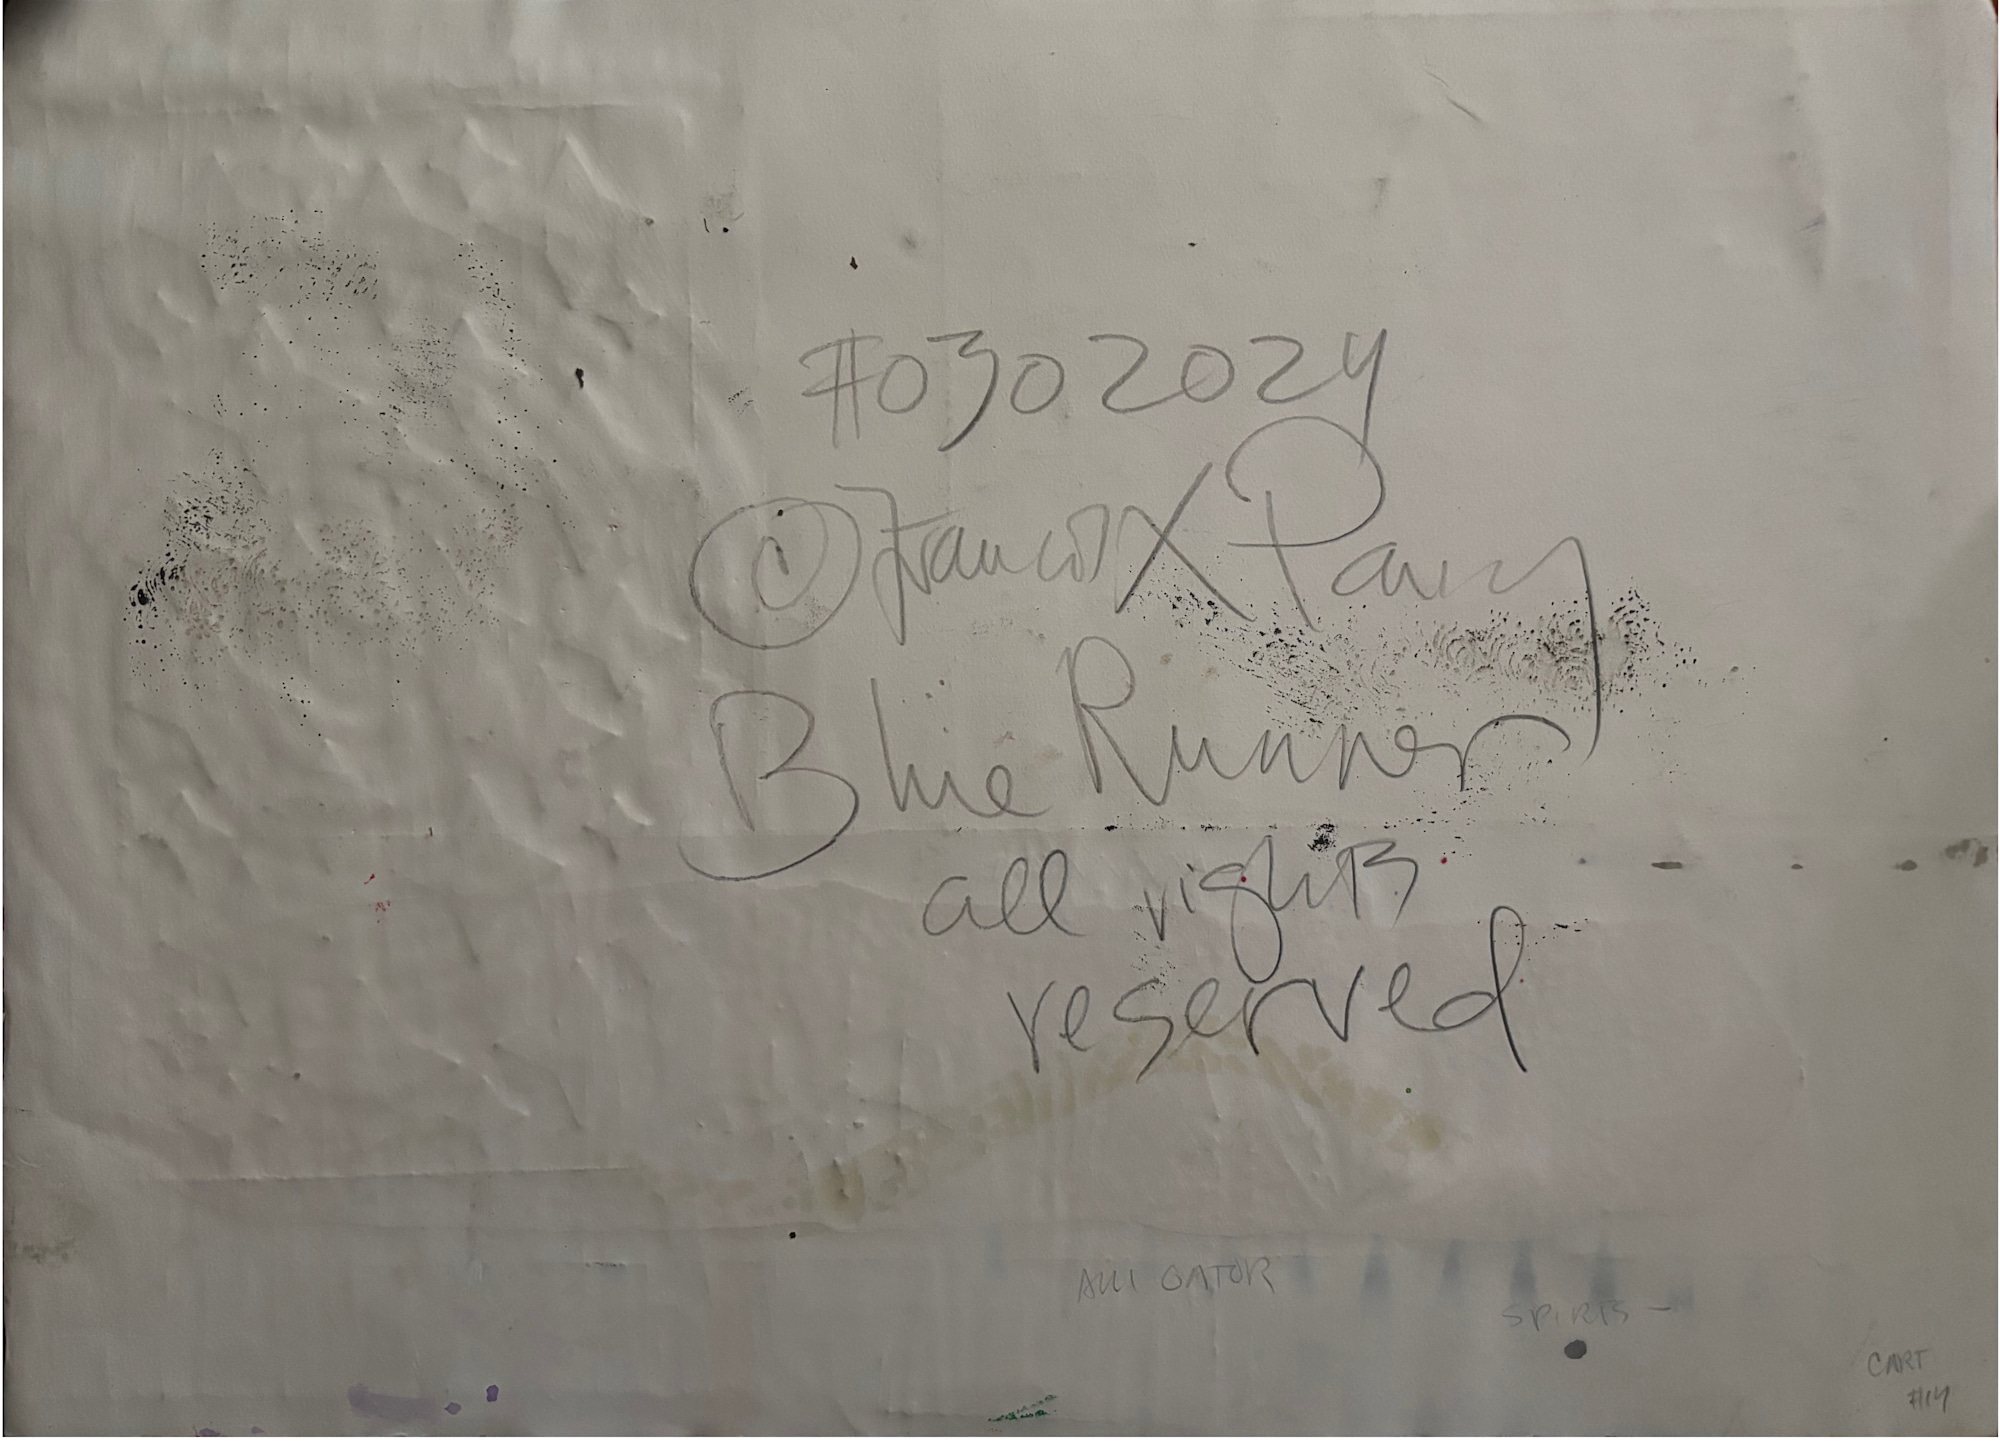 #0302024
© Francis X Pavy
Blue Runner
all rights
reserved
ALLIGATOR
SPIRITS -
CART
#14